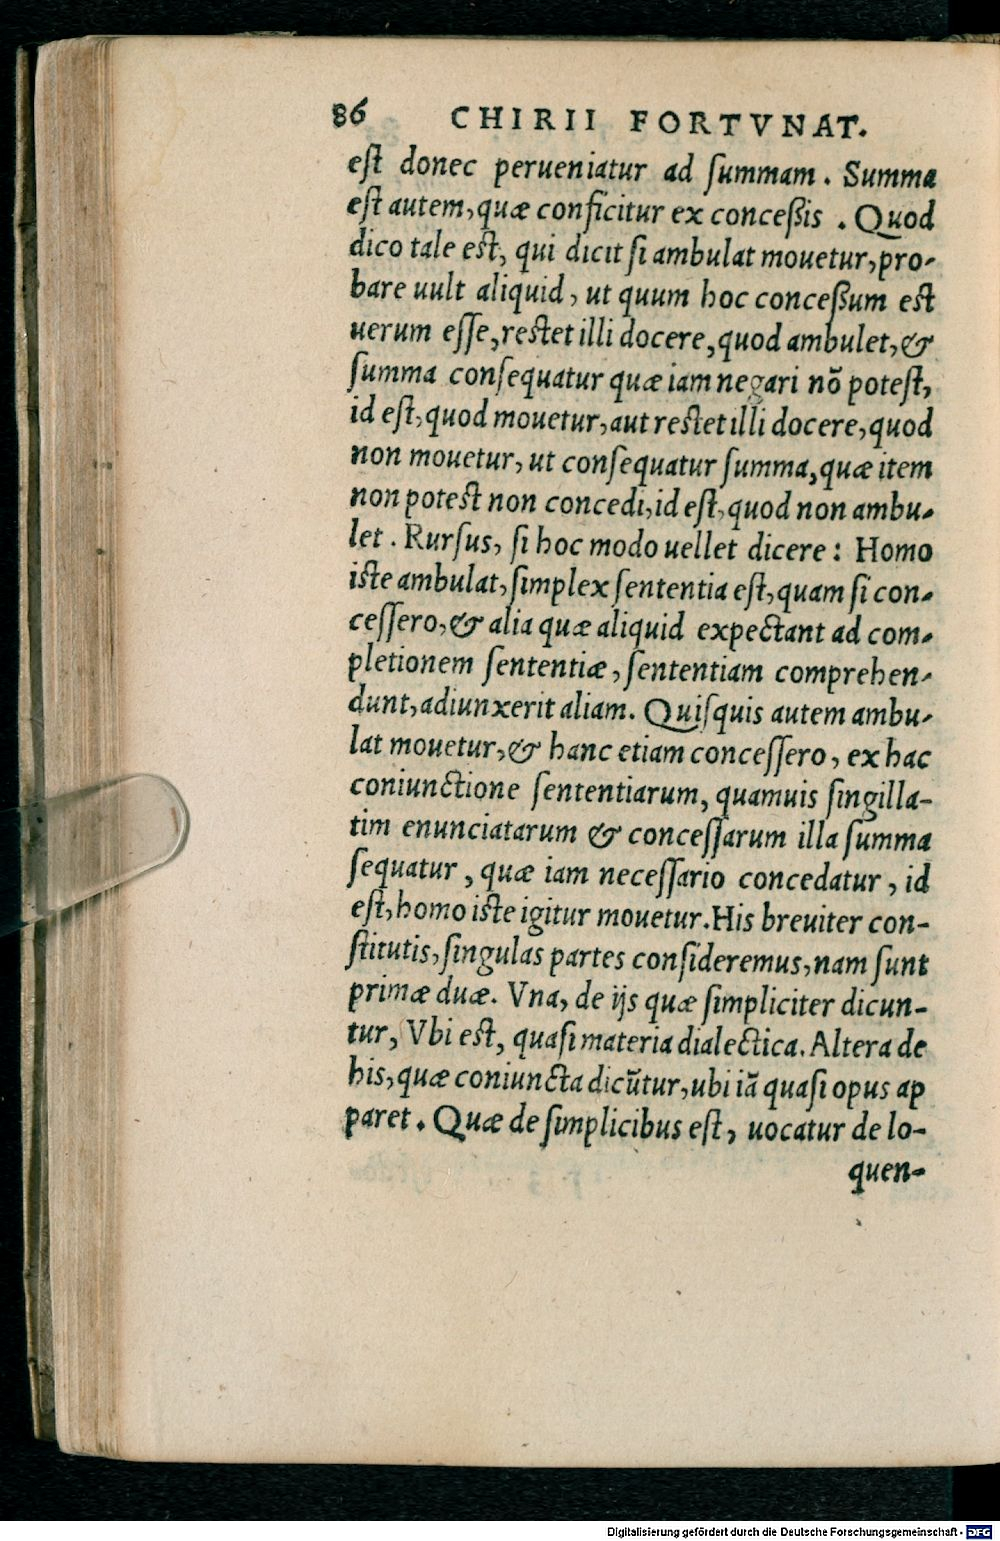 86 CHIRII FORTVNAT.
eſt donec perueniatur ad ſummam. Summa
eſt autem, quæ conficitur ex conceßis. Quod
dico tale est, qui dicit ſi ambulat mouetur, pro-
bare uult aliquid, ut quum hoc conceßum est
uerum eſſe, restet illi docere, quod ambulet, &
ſumma conſequatur quæ iam negari nō poteſt,
id eſt, quod mouetur, aut restet illi docere, quod
non mouetur, ut conſequatur ſumma, quæ item
non potest non concedi, id eſt, quod non ambu-
let. Rurſus, ſi hoc modo uellet dicere: Homo
iste ambulat, ſimplex ſententia eſt, quam ſi con-
ceſſero, & alia quæ aliquid expectant ad com-
pletionem ſententiæ, ſententiam comprehen-
dunt, adiunxerit aliam. Quiſquis autem ambu-
lat mouetur, & hanc etiam conceſſero, ex hac
coniunctione ſententiarum, quamuis ſingilla-
tim enunciatarum & conceſſarum illa ſumma
ſequatur, quæ iam neceſſario concedatur, id
eſt, homo iste igitur mouetur. His breuiter con-
ſtitutis, ſingulas partes conſideremus, nam ſunt
primæ duæ. Vna, de ijs quæ ſimpliciter dicun-
tur, Vbi est, quaſi materia dialectica. Altera de
his, quæ coniuncta dicūtur, ubi iā quaſi opus ap
paret. Quæ de ſimplicibus eſt, uocatur de lo-
quen-
Digitalisierung gefördert durch die Deutsche Forschungsgemeinschaft - DFG